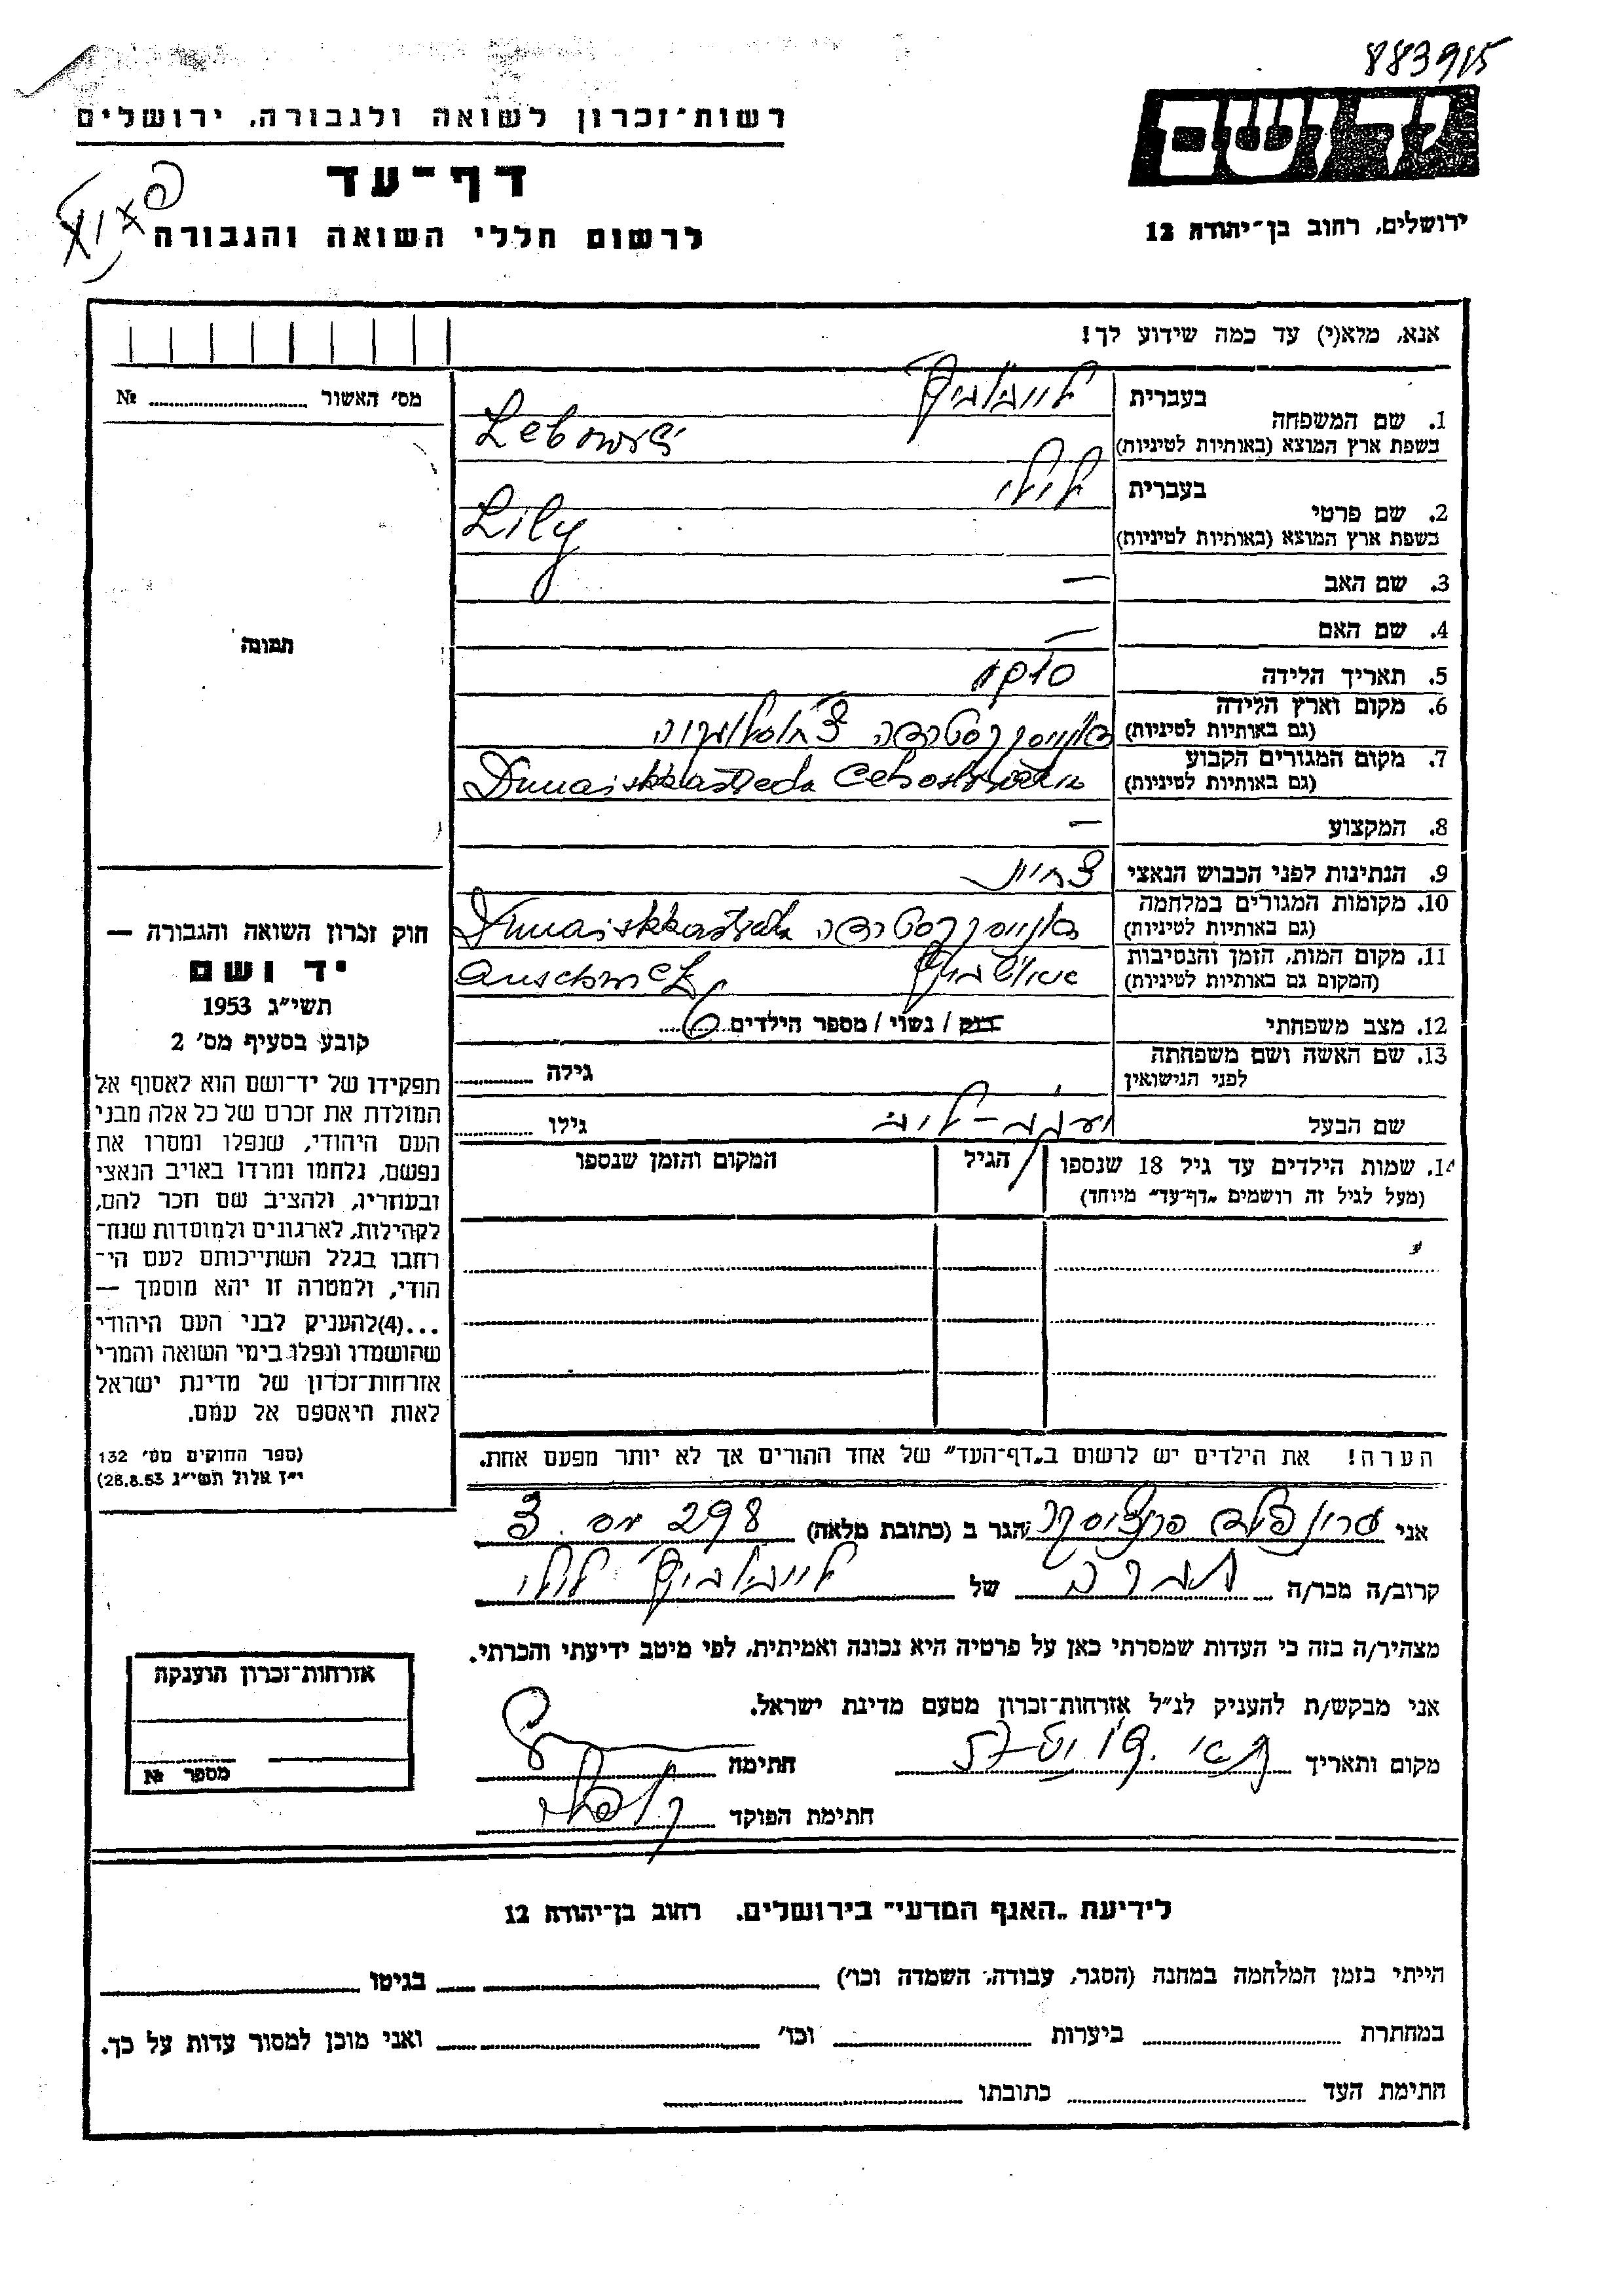 883915
יד ושם
רשות־זכרון לשואה ולגבורה, ירושלים
דף־עד
לרשום חללי השואה והגבורה
ירושלים, רחוב בן־יהודה 12
אנא, מלא(י) עד כמה שידוע לך!
מס׳ האשור № 
1. שם המשפחה
בעברית לייבוביץ
בשפת ארץ המוצא (באותיות לטיניות)
2. שם פרטי
בעברית לילי
בשפת ארץ המוצא (באותיות לטיניות) Lily
3. שם האב —
4. שם האם —
5. תאריך הלידה
6. מקום וארץ הלידה
(גם באותיות לטיניות)
7. מקום המגורים הקבוע
(גם באותיות לטיניות)
8. המקצוע —
9. הנתינות לפני הכבוש הנאצי צ׳כית
10. מקומות המגורים במלחמה
(גם באותיות לטיניות)
11. מקום המות, הזמן והנסיבות אושוויץ
(המקום גם באותיות לטיניות)
12. מצב משפחתי רוק / נשוי / מספר הילדים 6
13. שם האשה ושם משפחתה
לפני הנישואין גילה
שם הבעל גילו
14. שמות הילדים עד גיל 18 שנספו
(מעל לגיל זה רושמים „דף־עד״ מיוחד)
הגיל
המקום והזמן שנספו
הערה! את הילדים יש לרשום ב„דף־העד״ של אחד ההורים אך לא יותר מפעם אחת.
תמונה
חוק זכרון השואה והגבורה —
יד ושם
תשי״ג 1953
קובע בסעיף מס׳ 2
תפקידו של יד־ושם הוא לאסוף אל
המולדת את זכרם של כל אלה מבני
העם היהודי, שנפלו ומסרו את
נפשם, נלחמו ומרדו באויב הנאצי
ובעוזריו, ולהציב שם וזכר להם,
לקהילות, לארגונים ולמוסדות שנח־
רבו בגלל השתייכותם לעם הי־
הודי, ולמטרה זו יהא מוסמך —
...(4)להעניק לבני העם היהודי
שהושמדו ונפלו בימי השואה והמרי
אזרחות־זכרון של מדינת ישראל
לאות היאספם אל עמם.
(ספר החוקים מס׳ 132
י״ז אלול תשי״ג 28.8.53)
אני הגר ב (כתובת מלאה) 298
קרוב/ה מכר/ה של לייבוביץ לילי
מצהיר/ה בזה כי העדות שמסרתי כאן על פרטיה היא נכונה ואמיתית, לפי מיטב ידיעתי והכרתי.
אני מבקש/ת להעניק לנ״ל אזרחות־זכרון מטעם מדינת ישראל.
מקום ותאריך חתימה
חתימת הפוקד
אזרחות־זכרון הוענקה
מספר №
לידיעת „האגף המדעי״ בירושלים, רחוב בן־יהודה 12
הייתי בזמן המלחמה במחנה (הסגר, עבודה, השמדה וכו׳) בגיטו
במחתרת ביערות וכו׳ ואני מוכן למסור עדות על כך.
חתימת העד כתובתו